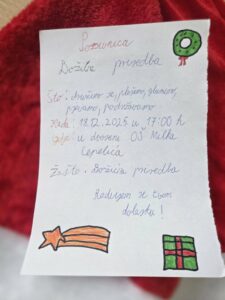 Pozivnica
Božićna priredba
Što: družimo se, plešemo, glumimo,
pjevamo,
Kada: 18.12.2025 u 17:00 h
Gdje: u dvorani OŠ Milka
Cepelića
Zašto: Božićna priredba
Radujem se tvom
dolasku!